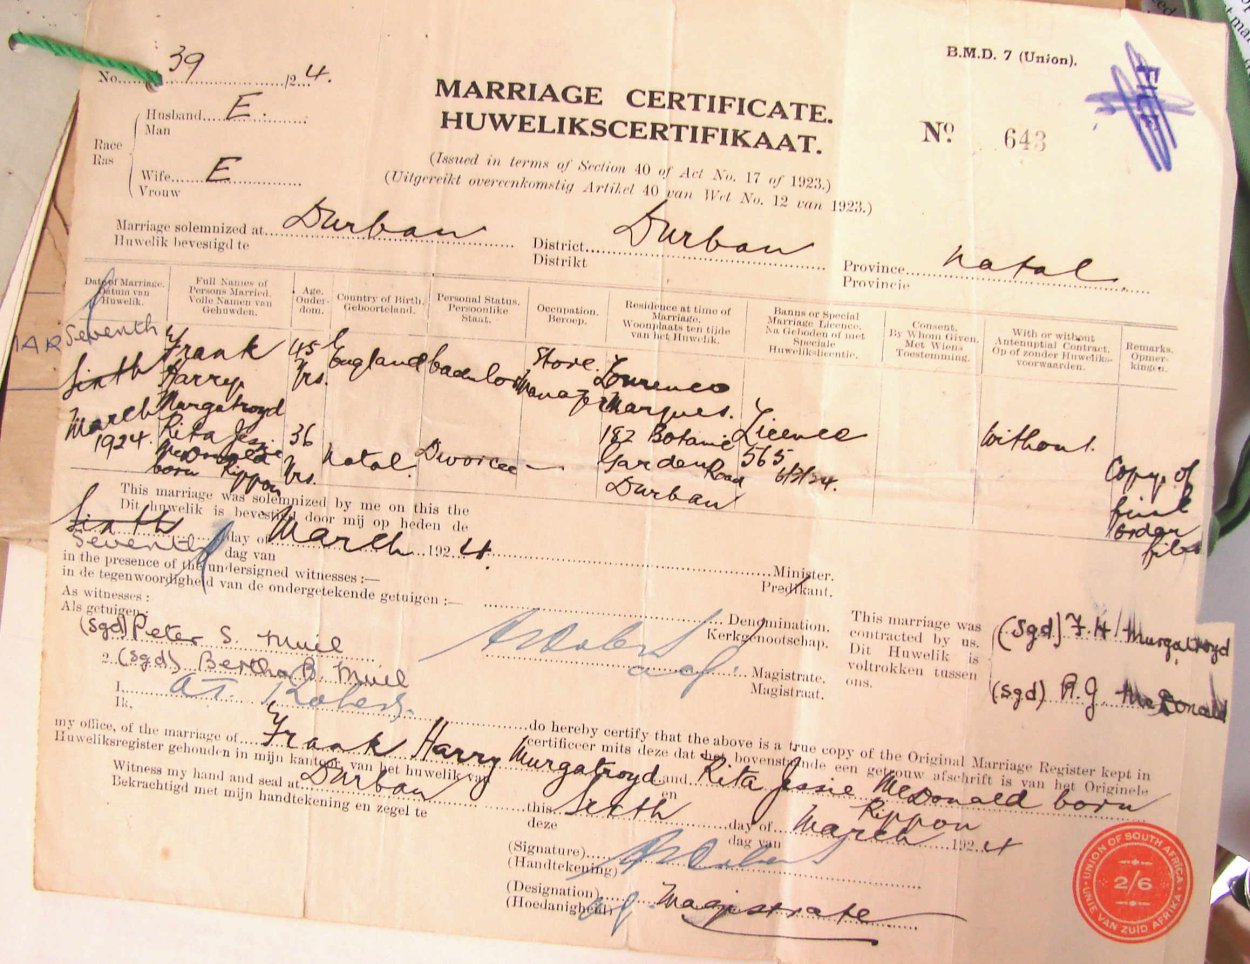 B.M.D. 7 (Union).
FILE
No. 39 /24.
MARRIAGE CERTIFICATE.
HUWELIKSCERTIFIKAAT.
Nº 643
(Issued in terms of Section 40 of Act No. 17 of 1923.)
(Uitgereikt overeenkomstig Artikel 40 van Wet No. 12 van 1923.)
Race
Ras
Husband E.
Man
Wife E
Vrouw
Marriage solemnized at Durban District Durban Province Natal.
Huwelik bevestigd te Distrikt Provincie
Date of Marriage. Datum van Huwelik.
Full Names of Persons Married. Volle Namen van Gehuwden.
Age. Ouderdom.
Country of Birth. Geboorteland.
Personal Status. Persoonlike Staat.
Occupation. Beroep.
Residence at time of Marriage. Woonplaats ten tijde van het Huwelik.
Banns or Special Marriage Licence. Na Geboden of met Speciale Huwelikslicentie.
Consent. By Whom Given. Met Wiens Toestemming.
With or without Antenuptial Contract. Op of zonder Huweliks-voorwaarden.
Remarks. Opmer-kingen.
Seventh
Sixth
March
1924.
Frank Harry Murgatroyd 45 Yrs. England bachelor Store Manager Lourenco Marques.
Rita Jessie McDonald born Rippon 36 Yrs. Natal Divorcee 182 Botanic Garden Road Durban
Licence
565
6/3/24.
Without.
Copy of final order filed
This marriage was solemnized by me on this the
Dit huwelik is bevestigd door mij op heden de
Sixth
Seventh day of March 1924.
dag van
in the presence of the undersigned witnesses :—
in de tegenwoordigheid van de ondergetekende getuigen :—
Minister.
Predikant.
As witnesses :
Als getuigen :
Denomination.
Kerkgenootschap.
(Sgd) Peter S. Muil
2. (Sgd) Bertha B. Muil
Magistrate.
Magistraat.
This marriage was contracted by us.
Dit Huwelik is voltrokken tussen ons.
(Sgd) F. H. Murgatroyd
(Sgd) R. J. McDonald
I, do hereby certify that the above is a true copy of the Original Marriage Register kept in
Ik, certificeer mits deze dat het bovenstaande een getrouw afschrift is van het Originele
my office, of the marriage of Frank Harry Murgatroyd and Rita Jessie McDonald born Rippon
Huweliksregister gehouden in mijn kantoor van het huwelik van en
Witness my hand and seal at Durban this Sixth day of March 1924
Bekrachtigd met mijn handtekening en zegel te deze dag van
(Signature)
(Handtekening)
(Designation) Magistrate
(Hoedanigheid)
UNION OF SOUTH AFRICA
2/6
UNIE VAN ZUID AFRIKA